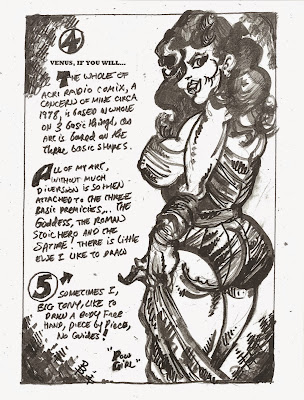 4
VENUS, IF YOU WILL...
THE WHOLE OF
ACRI RADIO COMIX, A
CONCERN OF MINE CIRCA
1978, IS BASED IN WHOLE
ON 3 BASIC things, AS
ART IS BASED ON the
three BASIC SHAPES.
ALL OF MY ART,
WITHOUT MUCH
DIVERSION IS SO OFTEN
ATTACHED TO THE THREE
BASIC PREMICIES... THE
GODDESS, THE ROMAN
STOIC HERO AND THE
SATYRE! THERE IS LITTLE
ELSE I LIKE TO DRAW
5
SOMETIMES I,
BIG TONY, LIKE TO
DRAW A BODY FREE
HAND, PIECE by PIECE,
NO GUIDES!
"POW
GIRL"